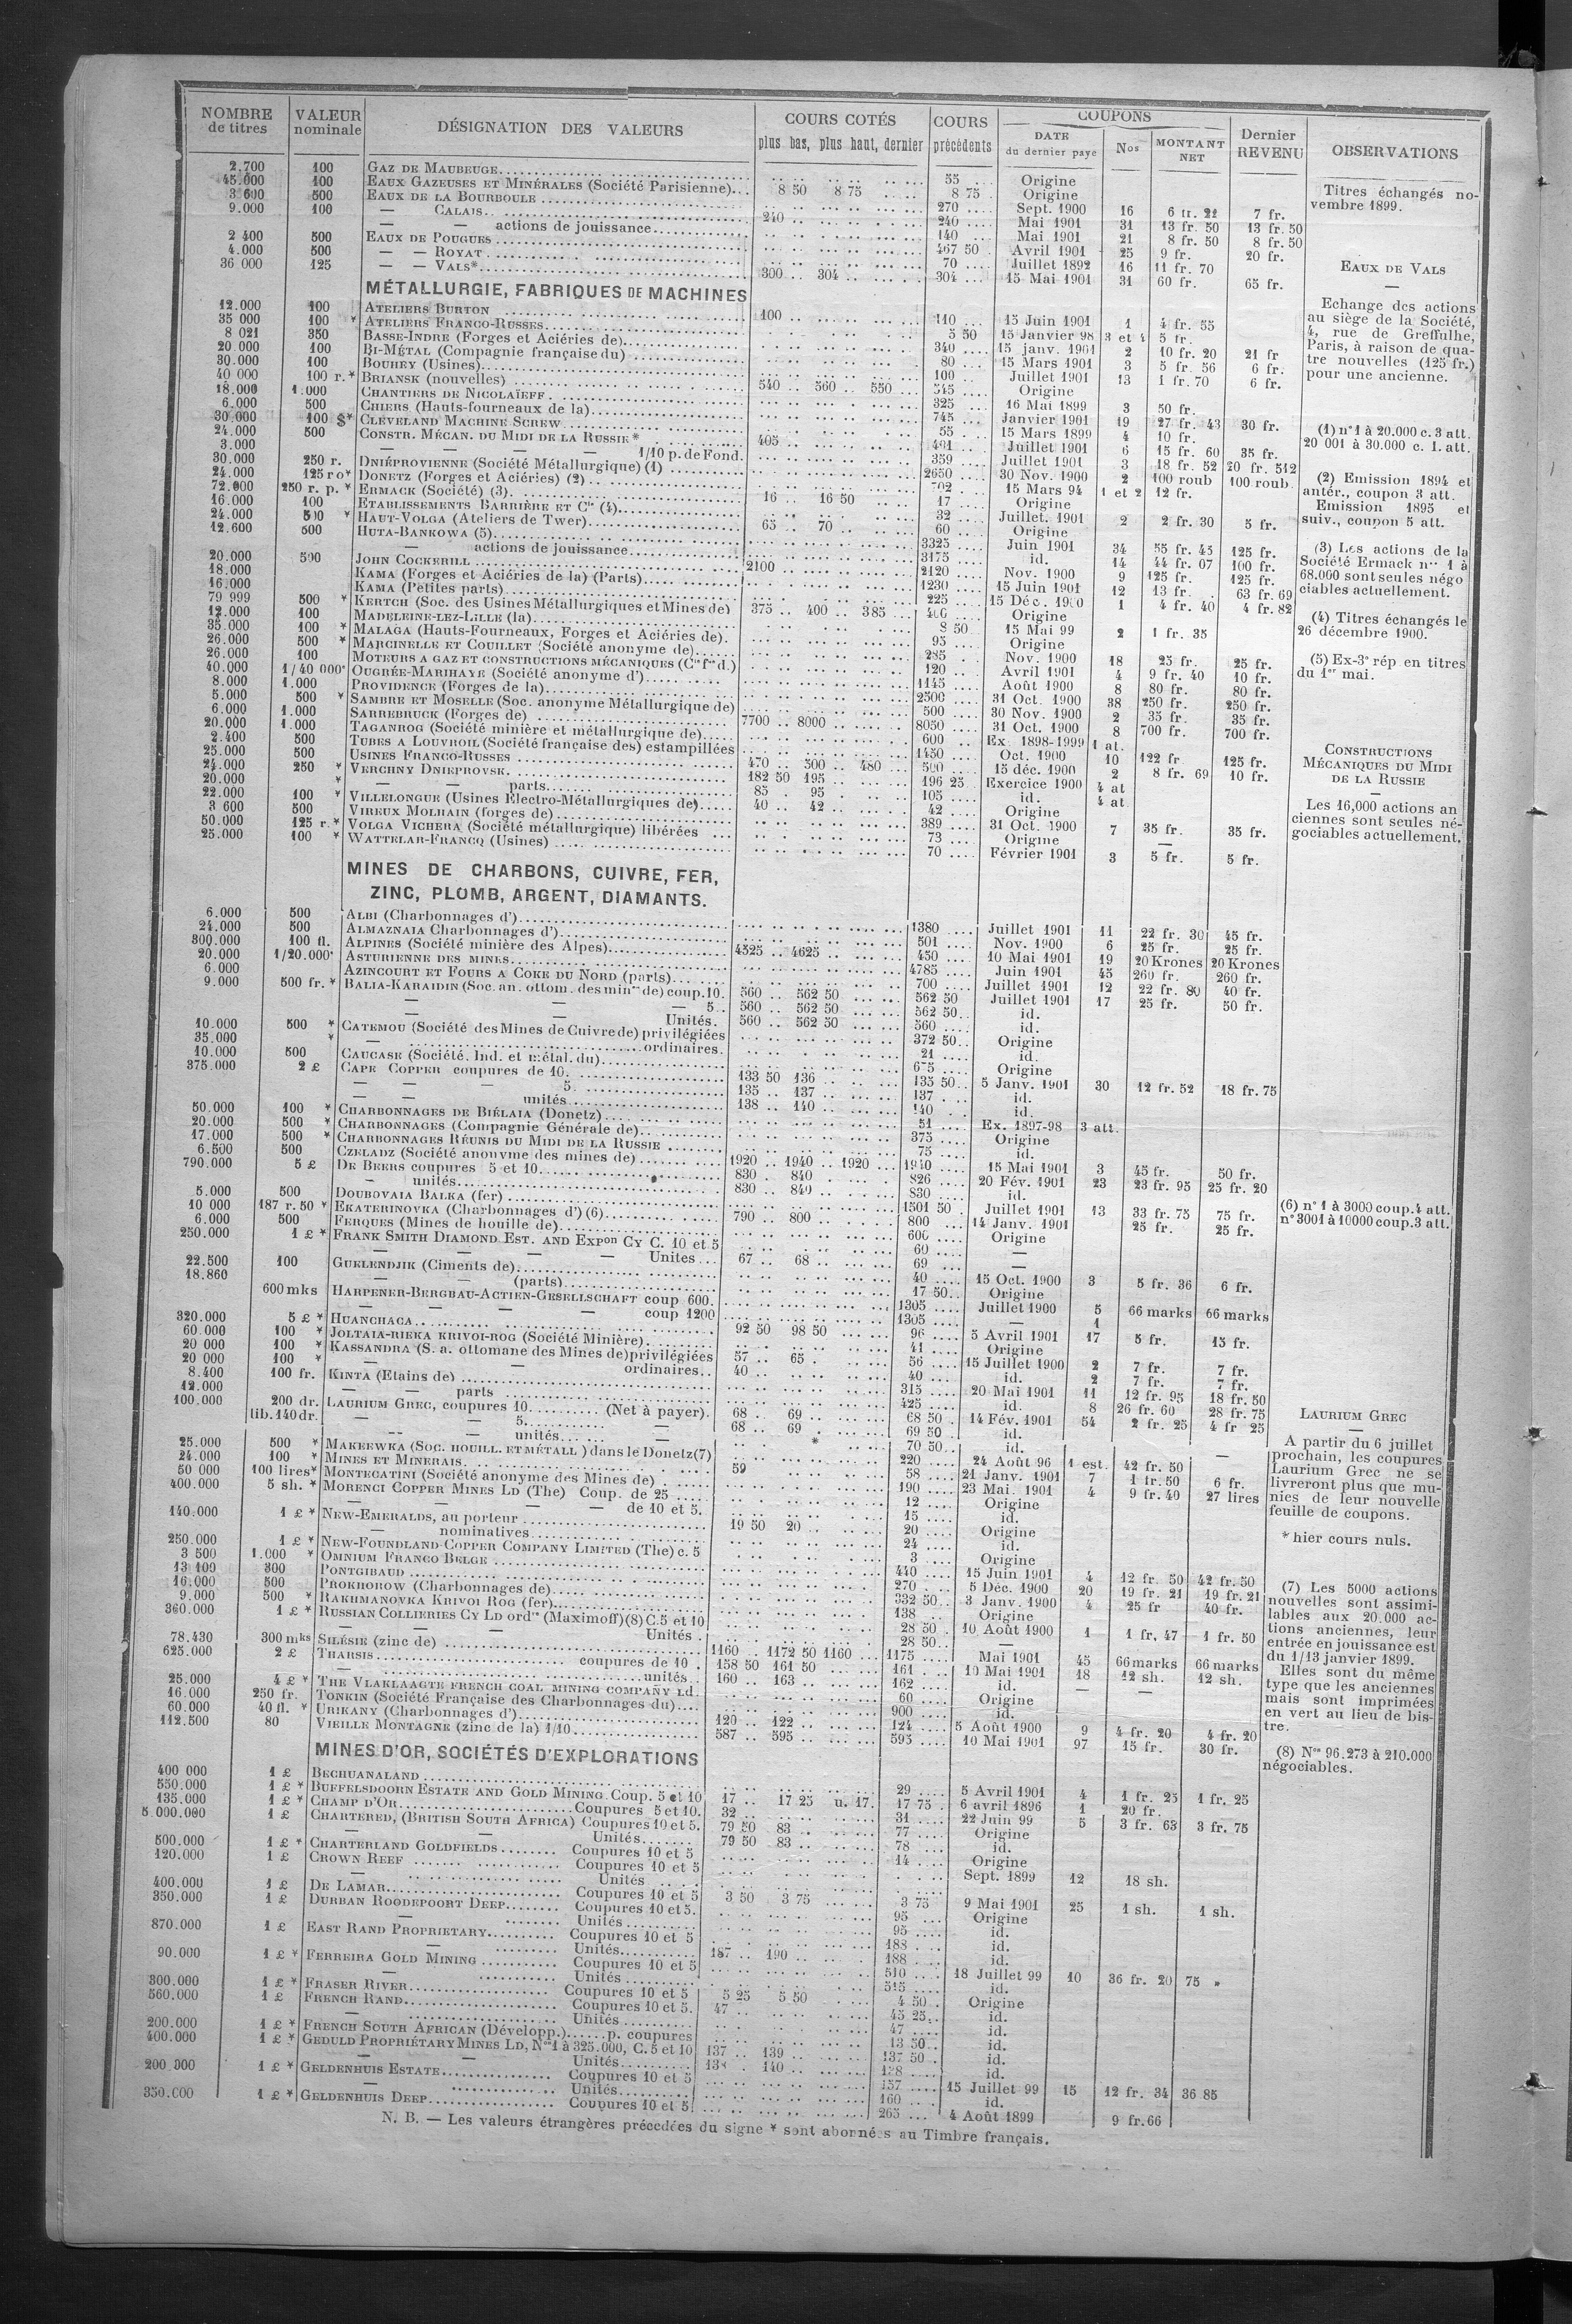 NOMBRE de titres | VALEUR nominale | DÉSIGNATION DES VALEURS | COURS COTÉS plus bas, plus haut, dernier | COURS précédents | COUPONS DATE du dernier payé | Nos | MONTANT NET | Dernier REVENU | OBSERVATIONS
2.700 100 GAZ DE MAUBEUGE 55 Origine
45.000 100 EAUX GAZEUSES ET MINÉRALES (Société Parisienne) 8 50 8 75 8 75 Origine
3 600 500 EAUX DE LA BOURBOULE 270 Sept. 1900 16 6 fr. 22 7 fr.
9.000 100 — CALAIS 240 240 Mai 1901 31 13 fr. 50 13 fr. 50
— — actions de jouissance 140 Mai 1901 21 8 fr. 50 8 fr. 50
2 400 500 EAUX DE POUGUES 467 50 Avril 1901 25 9 fr. 20 fr.
4.000 500 — — ROYAT 70 Juillet 1892 16 11 fr. 70
36 000 125 — — VALS* 300 304 304 15 Mai 1901 31 60 fr. 65 fr.
MÉTALLURGIE, FABRIQUES DE MACHINES
12.000 100 ATELIERS BURTON 100 110 15 Juin 1901 1 4 fr. 55
35 000 100 * ATELIERS FRANCO-RUSSES 5 50 15 Janvier 98 3 et 4 5 fr.
8 021 350 BASSE-INDRE (Forges et Aciéries de) 340 15 janv. 1901 2 10 fr. 20 21 fr
20.000 100 BI-MÉTAL (Compagnie française du) 80 15 Mars 1901 3 5 fr. 56 6 fr.
30.000 100 BOUHEY (Usines) 100 Juillet 1901 13 1 fr. 70 6 fr.
40 000 100 r.* BRIANSK (nouvelles) 540 560 550 545 Origine
18.000 1.000 CHANTIERS DE NICOLAÏEFF 325 16 Mai 1899 3 50 fr.
6.000 500 CHIERS (Hauts-fourneaux de la) 745 Janvier 1901 19 27 fr. 43 30 fr.
30.000 100 $* CLEVELAND MACHINE SCREW 55 15 Mars 1899 4 10 fr.
24.000 500 CONSTR. MÉCAN. DU MIDI DE LA RUSSIE* 405 491 Juillet 1901 6 15 fr. 60 35 fr.
3.000 — — — — 1/10 p. de Fond. 359 Juillet 1901 3 18 fr. 52 20 fr. 512
30.000 250 r. DNIÉPROVIENNE (Société Métallurgique) (1) 2650 30 Nov. 1900 2 100 roub 100 roub.
24.000 125 ro* DONETZ (Forges et Aciéries) (2) 702 15 Mars 94 1 et 2 12 fr.
72.000 250 r. p. * ERMACK (Société) (3) 16 16 50 17 Origine
16.000 100 ETABLISSEMENTS BARRIÈRE ET Cie (4) 32 Juillet. 1901 2 2 fr. 30 5 fr.
24.000 500 * HAUT-VOLGA (Ateliers de Twer) 65 70 60 Origine
12.600 500 HUTA-BANKOWA (5) 3325 Juin 1901 34 55 fr. 45 125 fr.
— actions de jouissance 3175 id. 14 44 fr. 07 100 fr.
20.000 500 JOHN COCKERILL 2100 2120 Nov. 1900 9 125 fr. 125 fr.
18.000 KAMA (Forges et Aciéries de la) (Parts) 1230 15 Juin 1901 12 13 fr. 63 fr. 69
16.000 KAMA (Petites parts) 225 15 Déc. 1900 1 4 fr. 40 4 fr. 82
79 999 500 * KERTCH (Soc. des Usines Métallurgiques et Mines de) 375 400 385 400 Origine
12.000 100 MADELEINE-LEZ-LILLE (la) 8 50 15 Mai 99 2 1 fr. 35
35.000 100 * MALAGA (Hauts-Fourneaux, Forges et Aciéries de) 95 Origine
26.000 500 * MARCINELLE ET COUILLET (Société anonyme de) 285 Nov. 1900 18 25 fr. 25 fr.
26.000 100 MOTEURS A GAZ ET CONSTRUCTIONS MÉCANIQUES (Cie fse d.) 120 Avril 1901 4 9 fr. 40 10 fr.
40.000 1/40 000e OUGRÉE-MARIHAYE (Société anonyme d') 1145 Août 1900 8 80 fr. 80 fr.
8.000 1.000 PROVIDENCE (Forges de la) 2500 31 Oct. 1900 38 250 fr. 250 fr.
5.000 500 * SAMBRE ET MOSELLE (Soc. anonyme Métallurgique de) 500 30 Nov. 1900 2 35 fr. 35 fr.
6.000 1.000 SARREBRUCK (Forges de) 7700 8000 8050 31 Oct. 1900 8 700 fr. 700 fr.
20.000 1.000 TAGANROG (Société minière et métallurgique de) 600 Ex. 1898-1999 1 at.
2.400 500 TUBES A LOUVROIL (Société française des) estampillées 1450 Oct. 1900 10 122 fr. 125 fr.
25.000 500 USINES FRANCO-RUSSES 470 500 480 500 15 déc. 1900 2 8 fr. 69 10 fr.
24.000 250 * VERCHNY DNIEPROVSK. 182 50 195 196 25 Exercice 1900 4 at
20.000 * — — parts 85 95 105 id. 4 at
22.000 100 * VILLELONGUE (Usines Electro-Métallurgiques de) 40 42 42 Origine
3 600 500 VIREUX MOLHAIN (forges de) 389 31 Oct. 1900 7 35 fr. 35 fr.
50.000 125 r.* VOLGA VICHERA (Société métallurgique) libérées 73 Origine —
25.000 100 * WATTELAR-FRANCQ (Usines) 70 Février 1901 3 5 fr. 5 fr.
MINES DE CHARBONS, CUIVRE, FER,
ZINC, PLOMB, ARGENT, DIAMANTS.
6.000 500 ALBI (Charbonnages d') 1380 Juillet 1901 11 22 fr. 30 45 fr.
24.000 500 ALMAZNAIA Charbonnages d') 501 Nov. 1900 6 25 fr. 25 fr.
300.000 100 fl. ALPINES (Société minière des Alpes) 450 10 Mai 1901 19 20 Krones 20 Krones
20.000 1/20.000e ASTURIENNE DES MINES 4525 4625 4785 Juin 1901 45 260 fr. 260 fr.
6.000 AZINCOURT ET FOURS A COKE DU NORD (parts) 700 Juillet 1901 12 22 fr. 80 40 fr.
9.000 500 fr. * BALIA-KARAIDIN (Soc. an. ottom. des mines de) coup. 10. 560 562 50 562 50 Juillet 1901 17 25 fr. 50 fr.
— — — 5 560 562 50 562 50 id.
— — Unités. 560 562 50 560 id.
10.000 500 * CATEMOU (Société des Mines de Cuivre de) privilégiées 372 50 Origine
35.000 * — ordinaires. 21 id.
10.000 500 CAUCASE (Société. Ind. et métal. du) 675 Origine
375.000 2 £ CAPE COPPER coupures de 10. 133 50 136 135 50 5 Janv. 1901 30 12 fr. 52 18 fr. 75
— — — 5 135 137 137 id.
— — unités 138 140 140 id.
50.000 100 * CHARBONNAGES DE BIÉLAIA (Donetz) 51 Ex. 1897-98 3 att.
20.000 500 * CHARBONNAGES (Compagnie Générale de) 375 Origine
17.000 500 * CHARBONNAGES RÉUNIS DU MIDI DE LA RUSSIE 75 id.
6.500 500 CZELADZ (Société anonyme des mines de) 1920 1940 1920 1940 15 Mai 1901 3 45 fr. 50 fr.
790.000 5 £ DE BEERS coupures 5 et 10 830 840 826 20 Fév. 1901 23 23 fr. 95 25 fr. 20
— unités 830 840 830 id.
5.000 500 DOUBOVAIA BALKA (fer) 1501 50 Juillet 1901 13 33 fr. 75 75 fr.
10 000 187 r. 50 * EKATERINOVKA (Charbonnages d') (6) 790 800 800 14 Janv. 1901 25 fr. 25 fr.
6.000 500 FERQUES (Mines de houille de) 600 Origine
250.000 1 £ * FRANK SMITH DIAMOND EST. AND EXPon CY C. 10 et 5 69 —
— — — — Unites 67 68 69 —
22.500 100 GUELENDJIK (Ciments de) 40 15 Oct. 1900 3 5 fr. 36 6 fr.
18.860 — — (parts) 17 50 Origine
600 mks HARPENER-BERGBAU-ACTIEN-GESELLSCHAFT coup 600. 1305 Juillet 1900 5 66 marks 66 marks
— — — — coup 1200 1305 — 1
320.000 5 £ * HUANCHACA 92 50 98 50 96 5 Avril 1901 17 5 fr. 15 fr.
60.000 100 * JOLTAIA-RIEKA KRIVOI-ROG (Société Minière) 41 Origine
20 000 100 * KASSANDRA (S. a. ottomane des Mines de) privilégiées 57 65 56 15 Juillet 1900 2 7 fr. 7 fr.
20 000 100 * — — ordinaires 40 40 id. 2 7 fr. 7 fr.
8.400 100 fr. KINTA (Etains de) 315 20 Mai 1901 11 12 fr. 95 18 fr. 50
12.000 — — parts 425 id. 8 26 fr. 60 28 fr. 75
100.000 200 dr. LAURIUM GREC, coupures 10. (Net à payer). 68 69 68 50 14 Fév. 1901 54 2 fr. 25 4 fr 25
lib. 140 dr. — — 5. — 68 69 69 50 id.
— — unités — 70 50 id.
25.000 500 * MAKEEWKA (Soc. HOUILL. ET MÉTALL.) dans le Donetz (7) * 220 24 Août 96 1 est. 42 fr. 50 —
24.000 100 * MINES ET MINERAIS. 59 58 21 Janv. 1901 7 1 fr. 50 6 fr.
50 000 100 lires* MONTECATINI (Société anonyme des Mines de) 190 23 Mai. 1901 4 9 fr. 40 27 lires
400.000 5 sh. * MORENCI COPPER MINES LD (The) Coup. de 25 12 Origine
— — — — de 10 et 5. 15 id.
140.000 1 £ * NEW-EMERALDS, au porteur 19 50 20 20 Origine
— nominatives 24 id.
250.000 1 £ * NEW-FOUNDLAND COPPER COMPANY LIMITED (The) c. 5 3 Origine
3 500 1.000 * OMNIUM FRANCO BELGE 440 15 Juin 1901 4 12 fr. 50 42 fr. 50
13 100 300 PONTGIBAUD 270 5 Déc. 1900 20 19 fr. 21 19 fr. 21
16.000 500 PROKHOROW (Charbonnages de) 332 50 3 Janv. 1900 4 25 fr 40 fr.
9.000 500 * RAKHMANOVKA KRIVOI ROG (fer) 138 Origine
360.000 1 £ * RUSSIAN COLLIERIES CY LD ordres (Maximoff) (8) C. 5 et 10 28 50 10 Août 1900 1 1 fr. 47 1 fr. 50
Unités 28 50 —
78.430 300 mks SILÉSIE (zinc de) 1160 1172 50 1160 1175 Mai 1901 45 66 marks 66 marks
625.000 2 £ THARSIS coupures de 10 158 50 161 50 161 10 Mai 1901 18 12 sh. 12 sh.
— unités 160 163 162 id. — —
25.000 4 £ * THE VLAKLAAGTE FRENCH COAL MINING COMPANY LD. 60 Origine
16.000 250 fr. TONKIN (Société Française des Charbonnages du) 900 id.
60.000 40 fl. * URIKANY (Charbonnages d') 120 122 124 5 Août 1900 9 4 fr. 20 4 fr. 20
112.500 80 VIEILLE MONTAGNE (zinc de la) 1/10 587 595 595 10 Mai 1901 97 15 fr. 30 fr.
MINES D'OR, SOCIÉTÉS D'EXPLORATIONS
400 000 1 £ BECHUANALAND 29 5 Avril 1901 4 1 fr. 25 1 fr. 25
550.000 1 £ * BUFFELSDOORN ESTATE AND GOLD MINING Coup. 5 et 10 17 17 25 u. 17. 17 75 6 avril 1896 1 20 fr.
135.000 1 £ * CHAMP D'OR Coupures 5 et 10. 32 31 22 Juin 99 5 3 fr. 63 3 fr. 75
5.000.000 1 £ CHARTERED, (BRITISH SOUTH AFRICA) Coupures 10 et 5. 79 50 83 77 Origine
— — Unités 79 50 83 78 id.
500.000 1 £ * CHARTERLAND GOLDFIELDS Coupures 10 et 5 14 Origine
120.000 1 £ CROWN REEF Coupures 10 et 5 Sept. 1899 12 18 sh.
— Unités
400.000 1 £ DE LAMAR Coupures 10 et 5 3 50 3 75 3 75 9 Mai 1901 25 1 sh. 1 sh.
350.000 1 £ DURBAN ROODEPOORT DEEP Coupures 10 et 5. 95 Origine
— Unités 95 id.
870.000 1 £ EAST RAND PROPRIETARY Coupures 10 et 5 188 id.
— Unités 187 190 188 id.
90.000 1 £ * FERREIRA GOLD MINING Coupures 10 et 5 510 18 Juillet 99 10 36 fr. 20 75 »
— Unités 515 id.
300.000 1 £ * FRASER RIVER Coupures 10 et 5 5 25 5 50 4 50 Origine
560.000 1 £ FRENCH RAND Coupures 10 et 5. 47 45 25 id.
— Unités 47 id.
200.000 1 £ * FRENCH SOUTH AFRICAN (Développ.) p. coupures 13 50 id.
400.000 1 £ * GEDULD PROPRIÉTARY MINES LD, Nos 1 à 325.000, C. 5 et 10 137 139 137 50 id.
— — Unités 138 140 138 id.
200 000 1 £ * GELDENHUIS ESTATE Coupures 10 et 5 157 15 Juillet 99 15 12 fr. 34 36 85
— Unités 160 id.
350.000 1 £ * GELDENHUIS DEEP Coupures 10 et 5 265 4 Août 1899 9 fr. 66
Titres échangés no-
vembre 1899.
EAUX DE VALS
—
Echange des actions
au siège de la Société,
4, rue de Greffulhe,
Paris, à raison de qua-
tre nouvelles (125 fr.)
pour une ancienne.
(1) n° 1 à 20.000 c. 3 att.
20 001 à 30.000 c. 1. att.
(2) Emission 1894 et
antér., coupon 3 att.
Emission 1895 et
suiv., coupon 5 att.
(3) Les actions de la
Société Ermack nos 1 à
68.000 sont seules négo
ciables actuellement.
(4) Titres échangés le
26 décembre 1900.
(5) Ex-3e rép en titres
du 1er mai.
CONSTRUCTIONS
MÉCANIQUES DU MIDI
DE LA RUSSIE
—
Les 16,000 actions an
ciennes sont seules né-
gociables actuellement.
(6) n° 1 à 3000 coup. 4 att.
n° 3001 à 10000 coup. 3 att.
LAURIUM GREC
—
A partir du 6 juillet
prochain, les coupures
Laurium Grec ne se
livreront plus que mu-
nies de leur nouvelle
feuille de coupons.
* hier cours nuls.
(7) Les 5000 actions
nouvelles sont assimi-
lables aux 20.000 ac-
tions anciennes, leur
entrée en jouissance est
du 1/13 janvier 1899.
Elles sont du même
type que les anciennes
mais sont imprimées
en vert au lieu de bis-
tre.
(8) Nos 96.273 à 210.000
négociables.
N. B. — Les valeurs étrangères précédées du signe * sont abonnées au Timbre français.